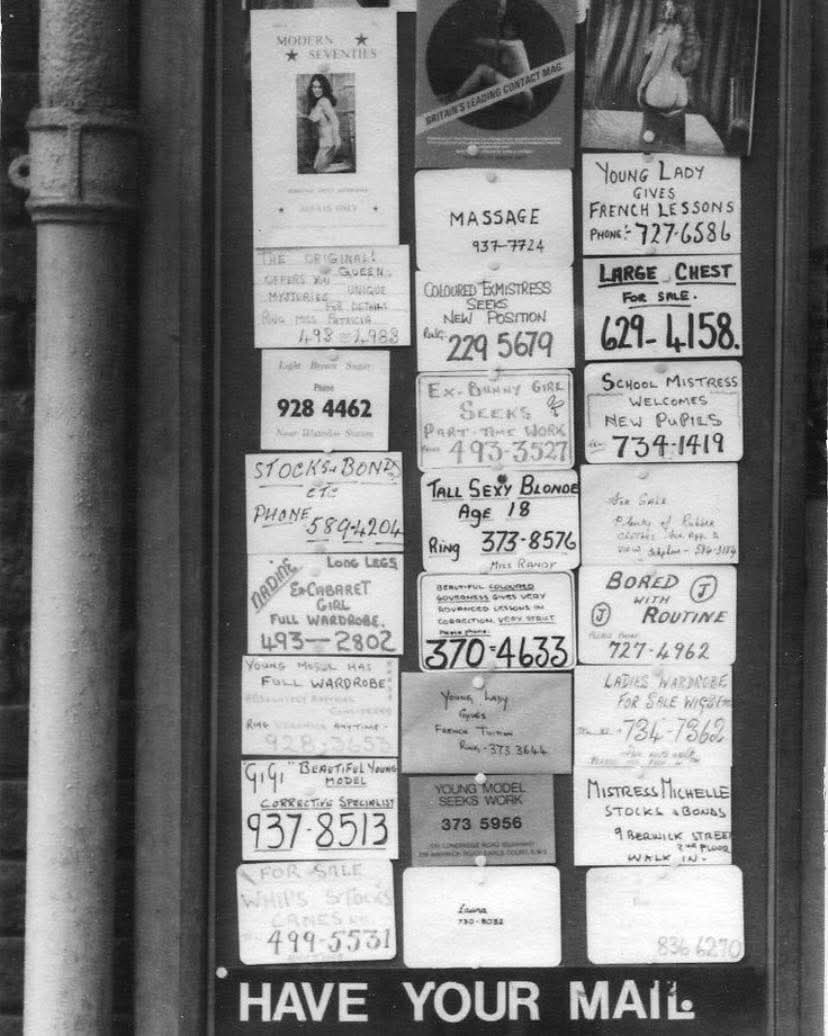 MODERN
SEVENTIES
ADULTS ONLY
THE ORIGINAL!
QUEEN.
OFFERS YOU
UNIQUE
MYSTERIES
FOR DETAILS
RING MISS PATRICIA
493-1983
Light Brown Sugar
Phone
928 4462
Near Waterloo Station
STOCKS & BONDS
ETC
PHONE
589-4204
NADINE
LONG LEGS
EX-CABARET
GIRL
FULL WARDROBE.
493-2802
YOUNG MODEL HAS
FULL WARDROBE
CONSIDERED
RING VERONICA ANYTIME-
928-3653
"GIGI" BEAUTIFUL YOUNG
MODEL
CORRECTIVE SPECIALIST
937-8513
FOR SALE
WHIPS STOCKS
CANES ETC.
499-5531
BRITAIN'S LEADING CONTACT MAG.
MASSAGE
937-7724
COLOURED EXMISTRESS
SEEKS
NEW POSITION
RING:
229 5679
EX-BUNNY GIRL
SEEKS
PART-TIME WORK
493-3527
TALL SEXY BLONDE
AGE 18
RING 373-8576
MISS RANDY
BEAUTIFUL COLOURED
GOVERNESS GIVES VERY
ADVANCED LESSONS IN
CORRECTION. VERY STRICT
Please phone:
370-4633
YOUNG LADY
GIVES
FRENCH TUITION
RING-373 3644
YOUNG MODEL
SEEKS WORK
373 5956
Laura
730-8032
YOUNG LADY
GIVES
FRENCH LESSONS
PHONE:- 727-6586
LARGE CHEST
FOR SALE.
629-4158.
SCHOOL MISTRESS
WELCOMES
NEW PUPILS
734-1419
For Sale
Plenty of Rubber
BORED
WITH
J
J
ROUTINE
PLEASE PHONE
727-4962
LADIES WARDROBE
FOR SALE WIGS Etc
734-7362
MISTRESS MICHELLE
STOCKS & BONDS
9 BERWICK STREET
2ND FLOOR
WALK IN.
836 6270
HAVE YOUR MAIL